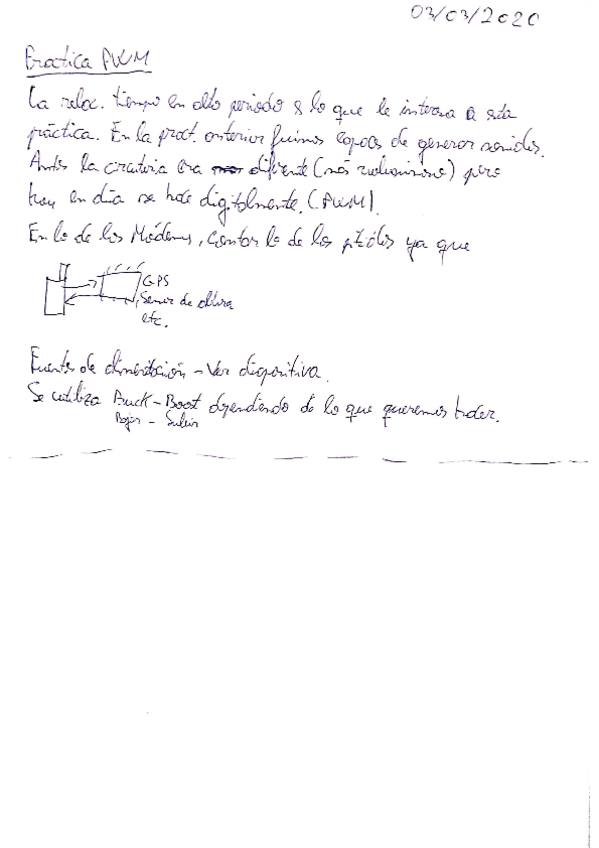 03/03/2020
Practica PWM
La relac. tiempo en alto periodo es lo que le interesa a esta
práctica. En la pract. anterior fuimos capaces de generar sonidos.
Antes la circuitería era diferente (más rudimentaria) pero
hoy en día se hace digitalmente. (PWM).
En lo de los Módems, contar lo de los ya que
GPS
Sensor de altura
etc.
Fuentes de alimentación - Ver diapositiva.
Se utiliza Buck-Boost dependiendo de lo que queremos hacer.
Bajar - Subir